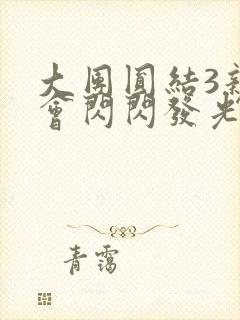 大團圓結3新
會閃閃發光
青靄